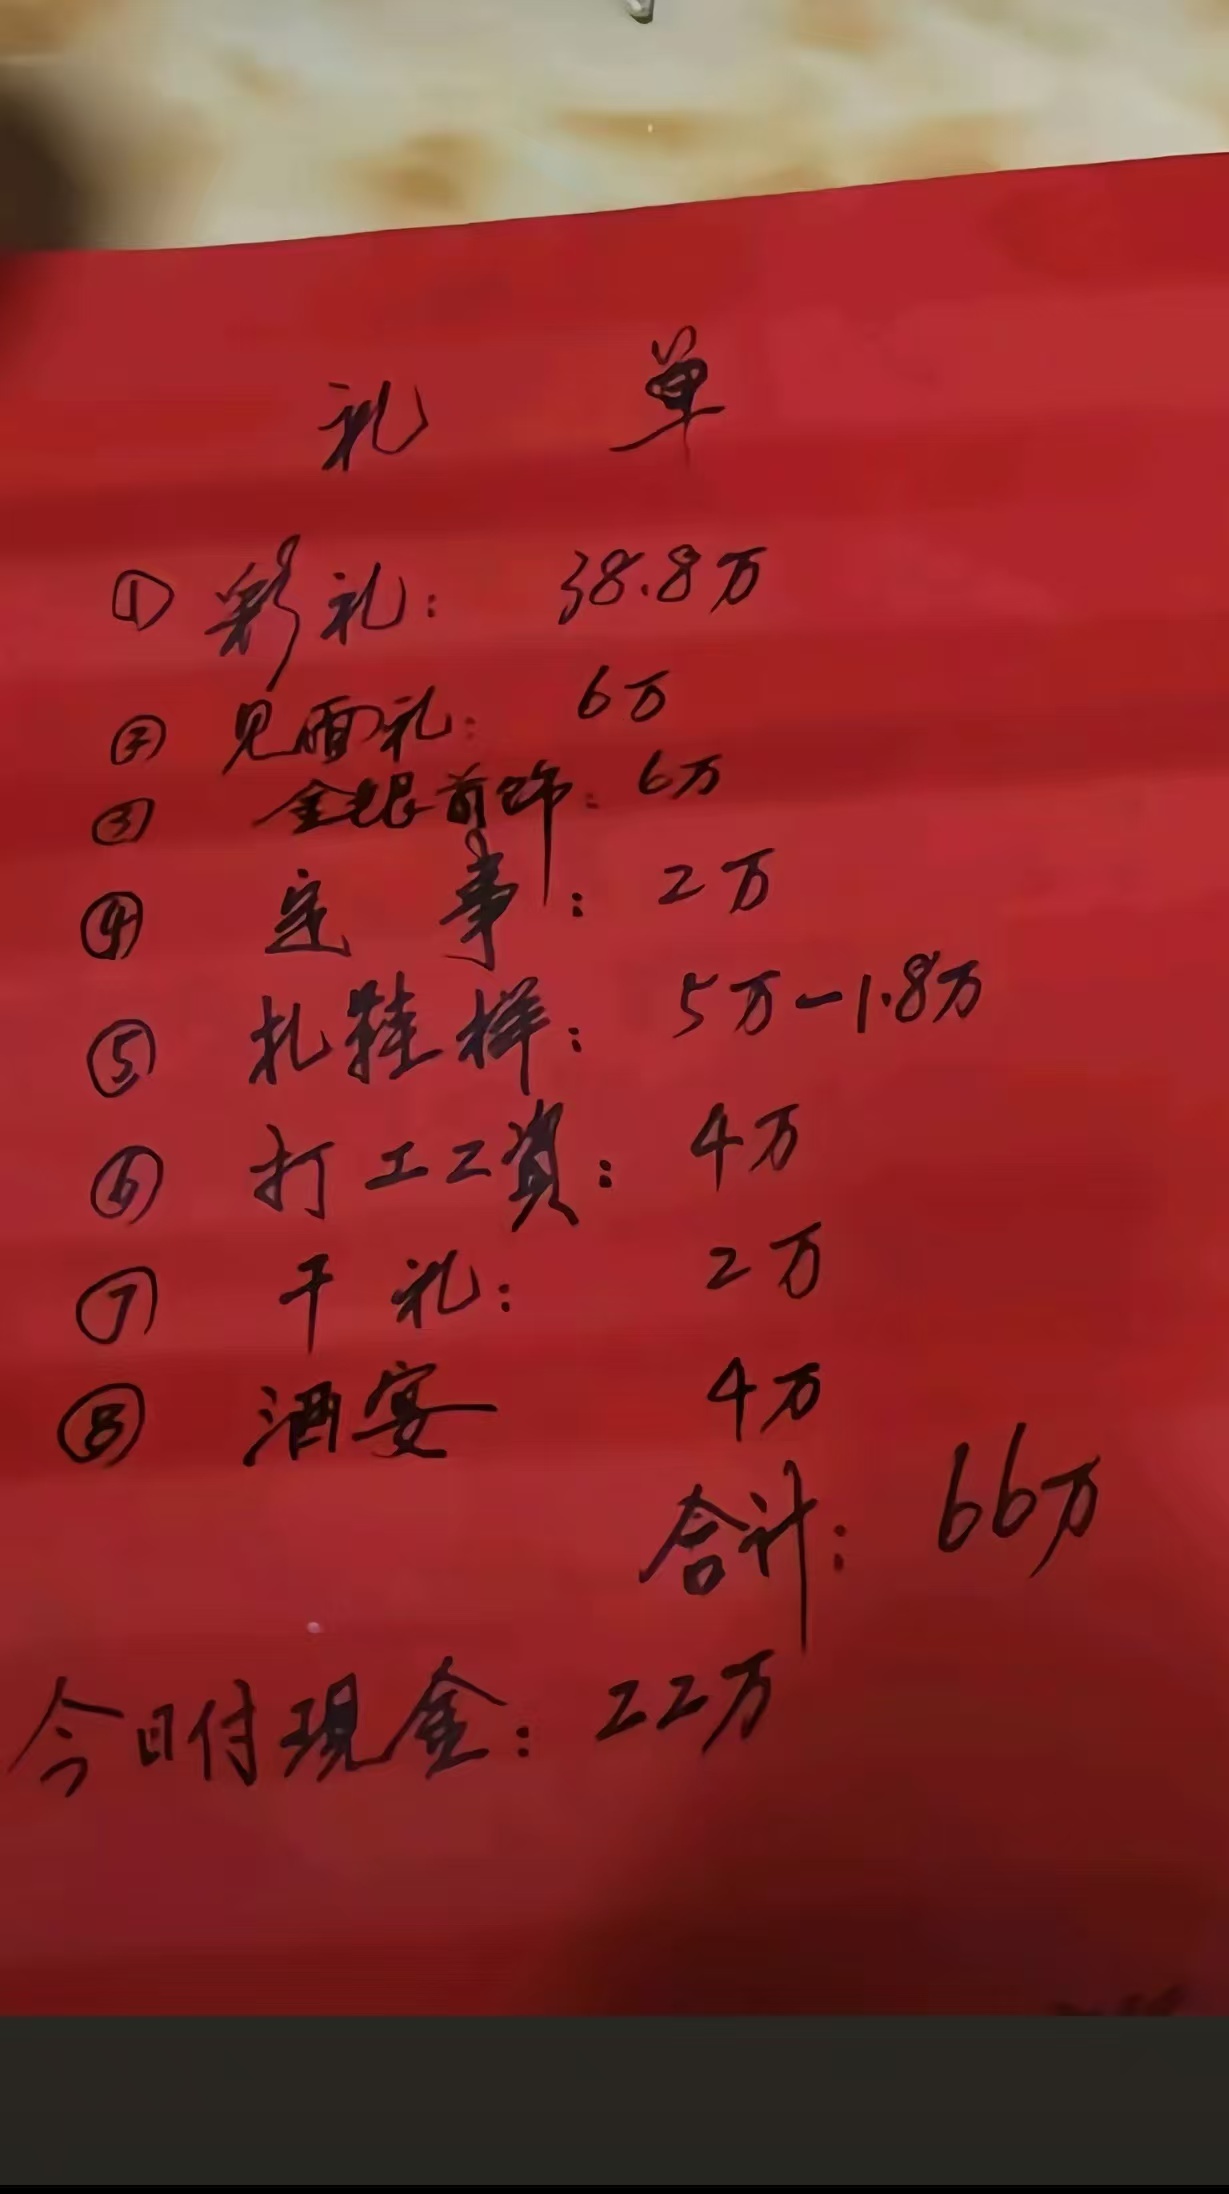 礼 单
① 彩礼: 38.8万
② 见面礼: 6万
③ 金银首饰: 6万
④ 定事: 2万
⑤ 扎鞋样: 5万-1.8万
⑥ 打工工資: 4万
⑦ 干礼: 2万
⑧ 酒宴 4万
合计: 66万
今日付現金: 22万